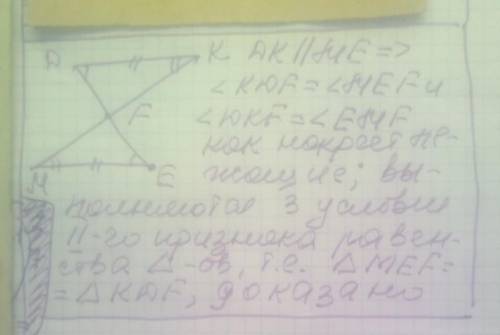 D K DK || ME =>
∠KDF = ∠MEF и
F ∠DKF = ∠EMF
как накрест ле-
M E жащие; вы-
полняются 3 условия
II-го признака равен-
ства Δ-ов, т.е. ΔMEF =
= ΔKDF, доказано